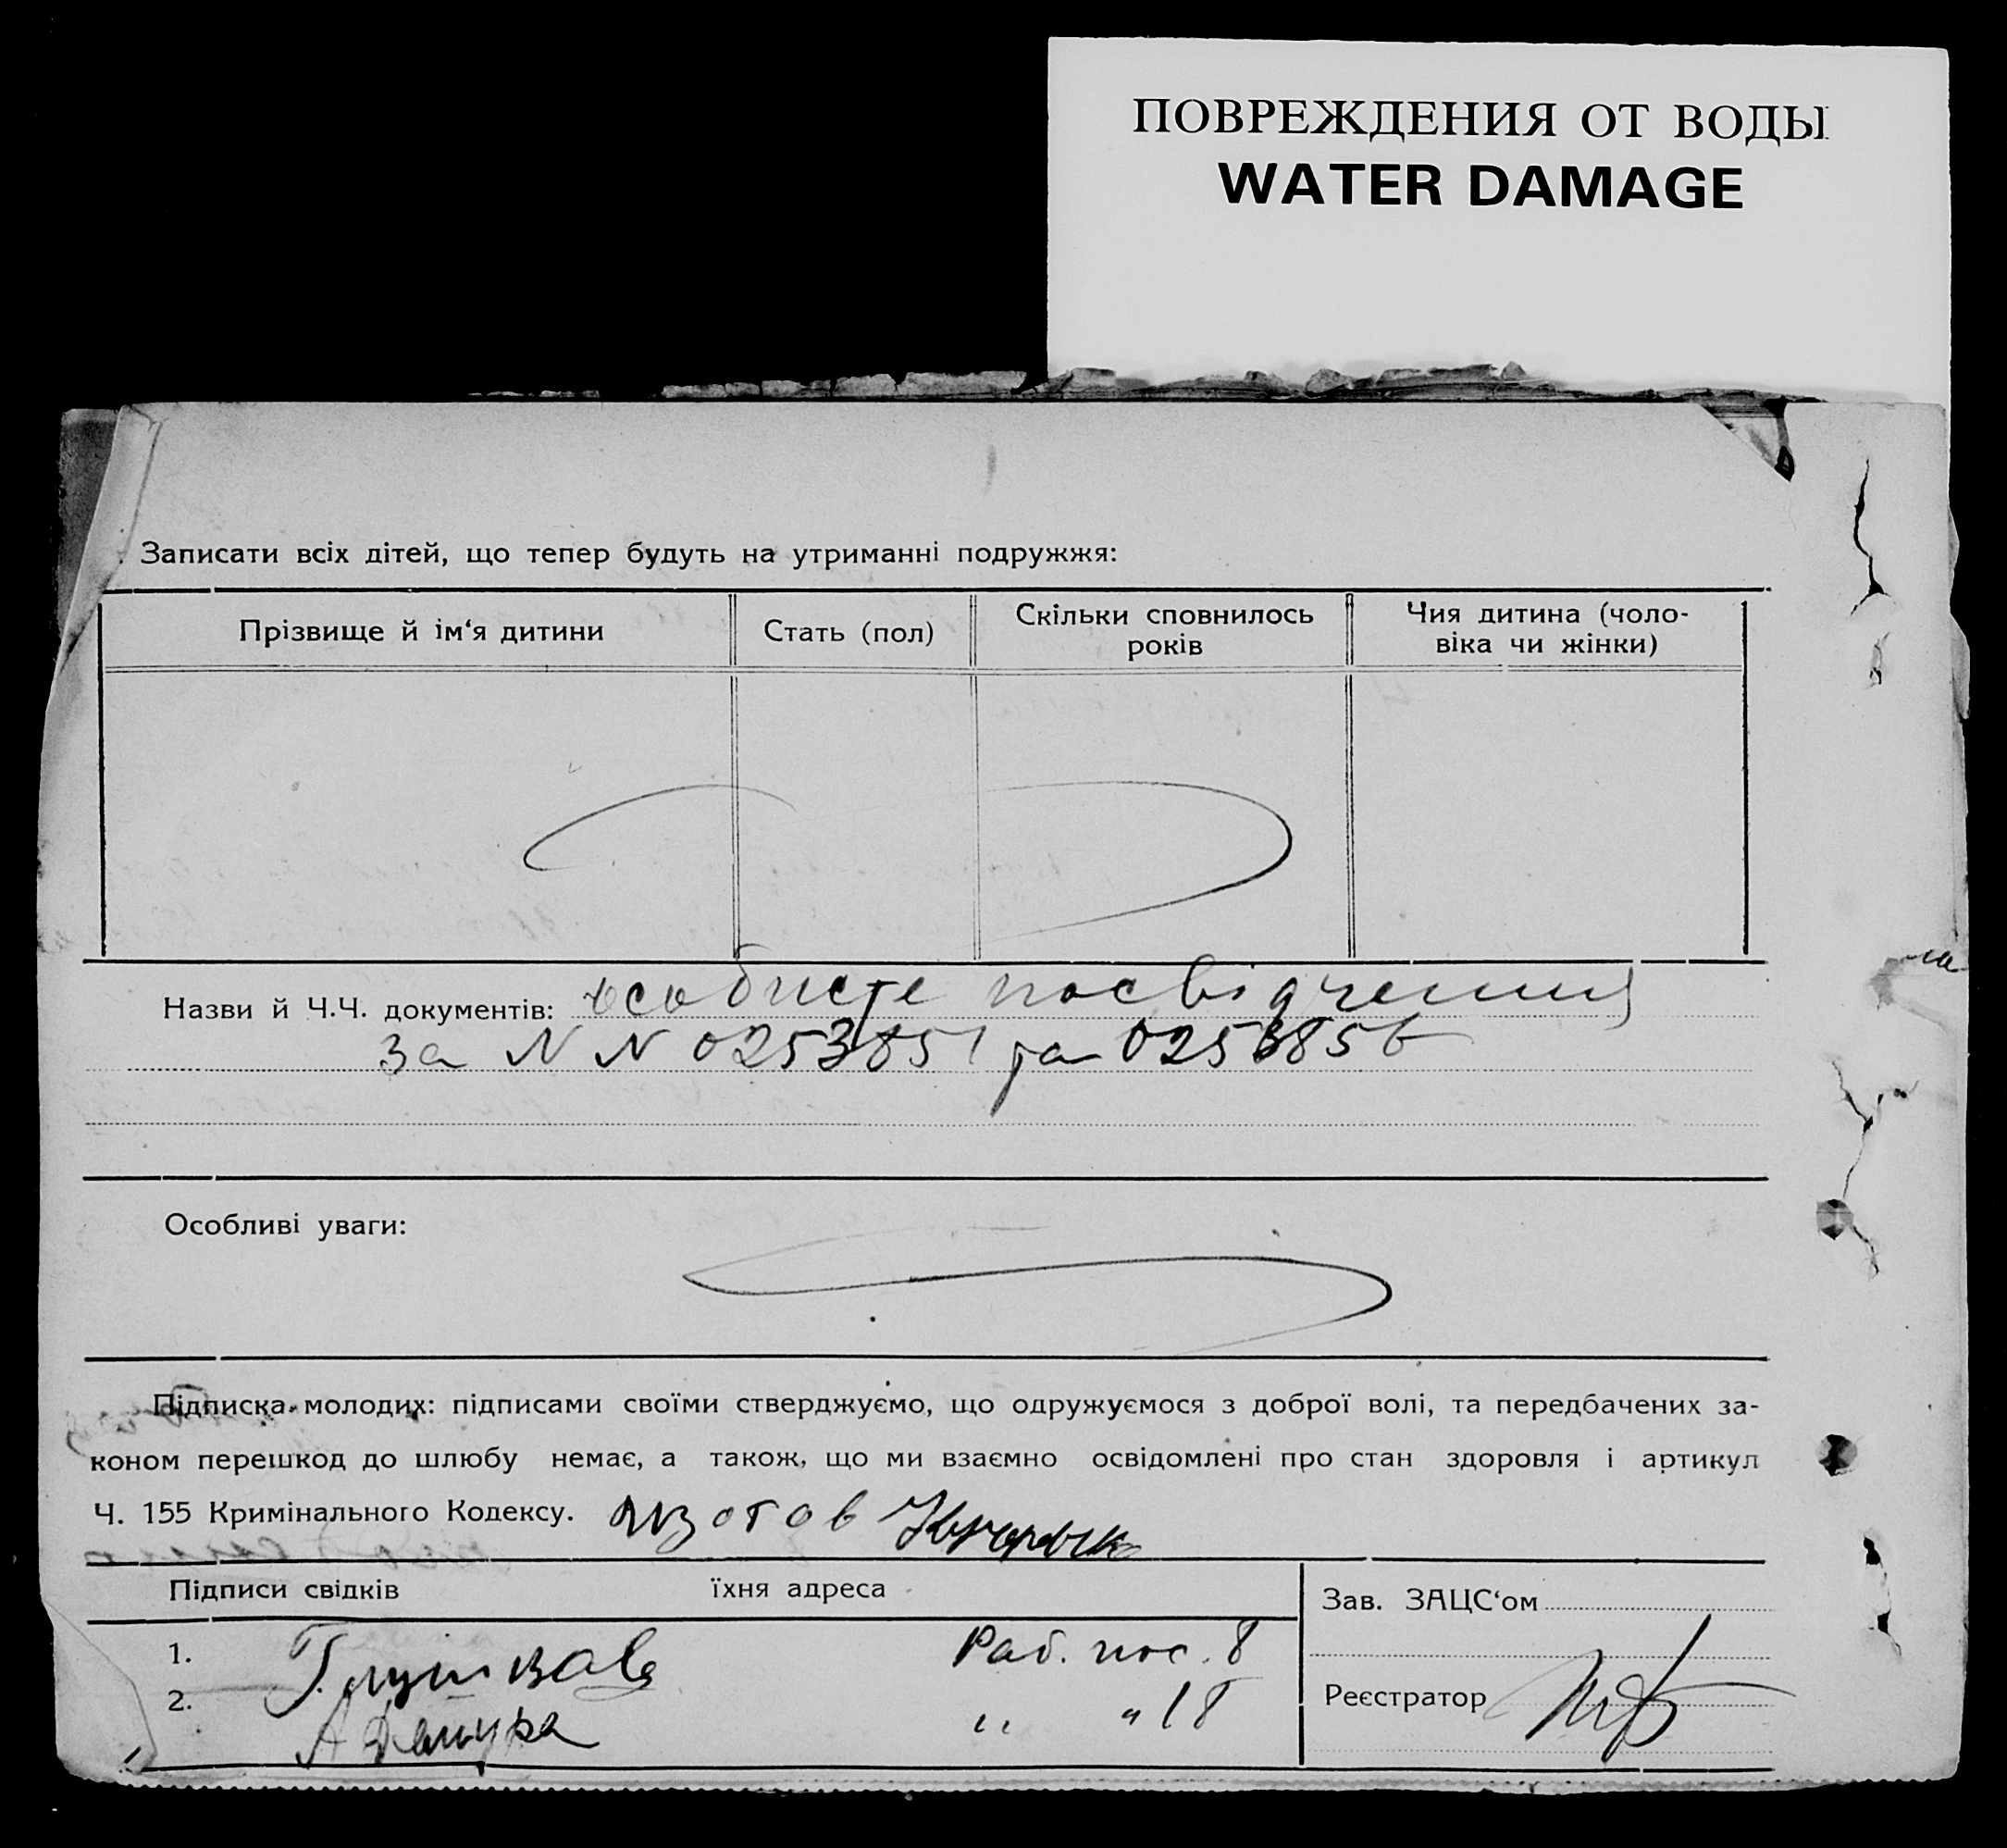 ПОВРЕЖДЕНИЯ ОТ ВОДЫ
WATER DAMAGE
Записати всіх дітей, що тепер будуть на утриманні подружжя:
Прізвище й ім‘я дитини
Стать (пол)
Скільки сповнилось
років
Чия дитина (чоло-
віка чи жінки)
Назви й Ч.Ч. документів: особисте посвідчення
за N N 0253851 та 0253856
Особливі уваги:
Підписка молодих: підписами своїми стверджуємо, що одружуємося з доброї волі, та передбачених за-
коном перешкод до шлюбу немає, а також, що ми взаємно освідомлені про стан здоровля і артикул
Ч. 155 Кримінального Кодексу. Изотов
Підписи свідків їхня адреса
Зав. ЗАЦС‘ом
1. Раб. пос. 8
2. " " 18
Реєстратор